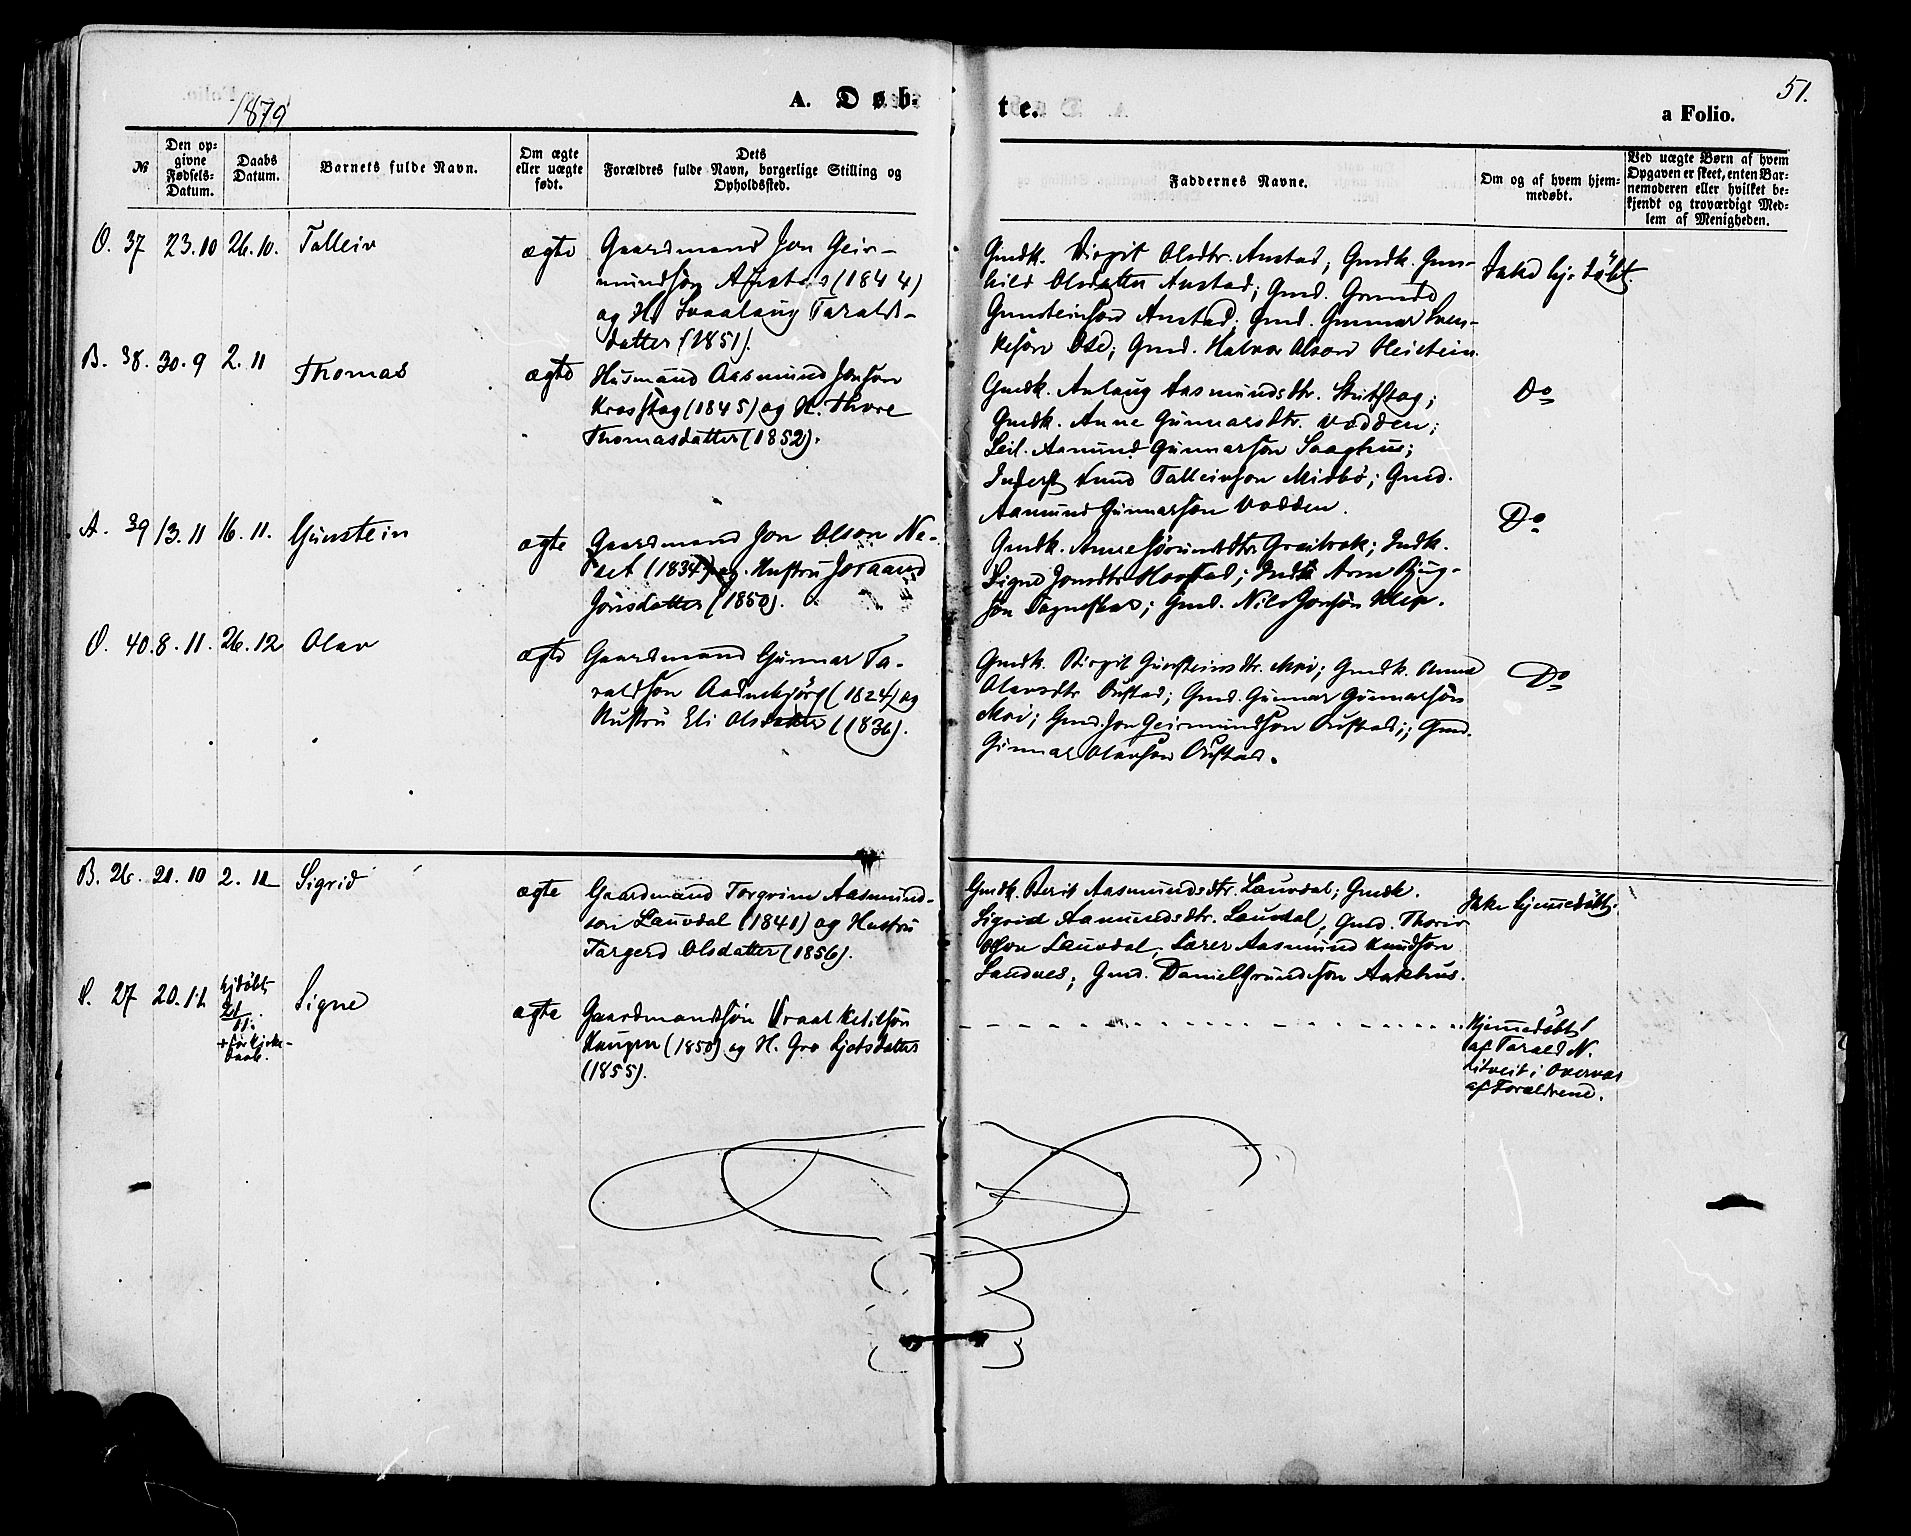 1879
A. Døb-
te.
51.
a Folio.
№
Den op-
givne
Fødsels-
Datum.
Daabs
Datum.
Barnets fulde Navn.
Om ægte
eller uægte
født.
Dets
Forældres fulde Navn, borgerlige Stilling og
Opholdssted.
Faddernes Navne.
Om og af hvem hjem-
medøbt.
Ved uægte Børn af hvem
Opgaven er skeet, enten Bar-
nemoderen eller hvilket be-
kjendt og troværdigt Med-
lem af Menigheden.
O. 37 23.10 26.10. Talleiv ægte
Gaardmand Jon Geir-
mundsøn (1844)
og H. Svaalaug Taralds-
datter (1851).
Gmdk. Birgit Olsdtr. Austad; Gmdk. Gun-
hild Olsdatter Austad; Gmd.
Gunsteinson Austad; Gmd. Gunnar Sven-
kesøn Ose; Gmd. Halvor Olson
Ikke hje.døbt.
B. 38. 30.9 2.11 Thomas ægte
Husmand Aasmund Jonson
(1845) og H. Thore
Thomasdatter (1852).
Gmdk. Anlaug Aasmundsdtr.
Gmdk. Anne Gunnarsdtr. Vodden;
Leil. Aamund Gunnarson
Inderst Knud Talleivson Midbø; Gmd.
Aamund Gunnarson Vodden.
Do
A. 39 13.11 16.11. Gunstein ægte
Gaardmand Jon Olson Ne-
set (1834) og Hustru Joraand
Jonsdatter (1850).
Gmdk. Anne; Indk.
Signe Jonsdtr.; Indk. Arne Bjug-
søn; Gmd. Nils Jonsøn
Do
O. 40. 8.11. 26.12 Olav ægte
Gaardmand Gunnar Ta-
raldsøn Aadnebjørg (1824) og
Hustru Eli Olsdatter (1836).
Gmdk. Birgit Gunsteinsdtr. Moi; Gmdk. Anna
Olavsdtr Oustad; Gmd. Gunnar Gunnarsøn
Moi; Gmd. Jon Geirmundson Oustad; Gmd.
Gunnar Olavson Oustad.
Do
B. 26. 21.10 2.11 Sigrid ægte
Gaardmand Torgrim Aasmund-
son Lauvdal (1841) og Hustru
Targerd Olsdatter (1856).
Gmdk. Berit Aasmundsdtr. Lauvdal; Gmdk.
Sigrid Aamundsdtr. Lauvdal, Gmd. Thorir
Olson Lauvdal, Lærer Aasmund Knudson
Sandnes; Gmd. Daniel Grundeson Aakhus.
Ikke hjemmedøbt.
S. 27 20.11 hjdøbt
21
11.
+ før kirke-
daab.
Signe ægte
Gaardmandsøn Vraal Ketilsøn
Haugen (1850) og H. Gro Ljotsdatter
(1855).
Hjemmedøbt
af Tarald N.
i Overvær
af Forældrene.